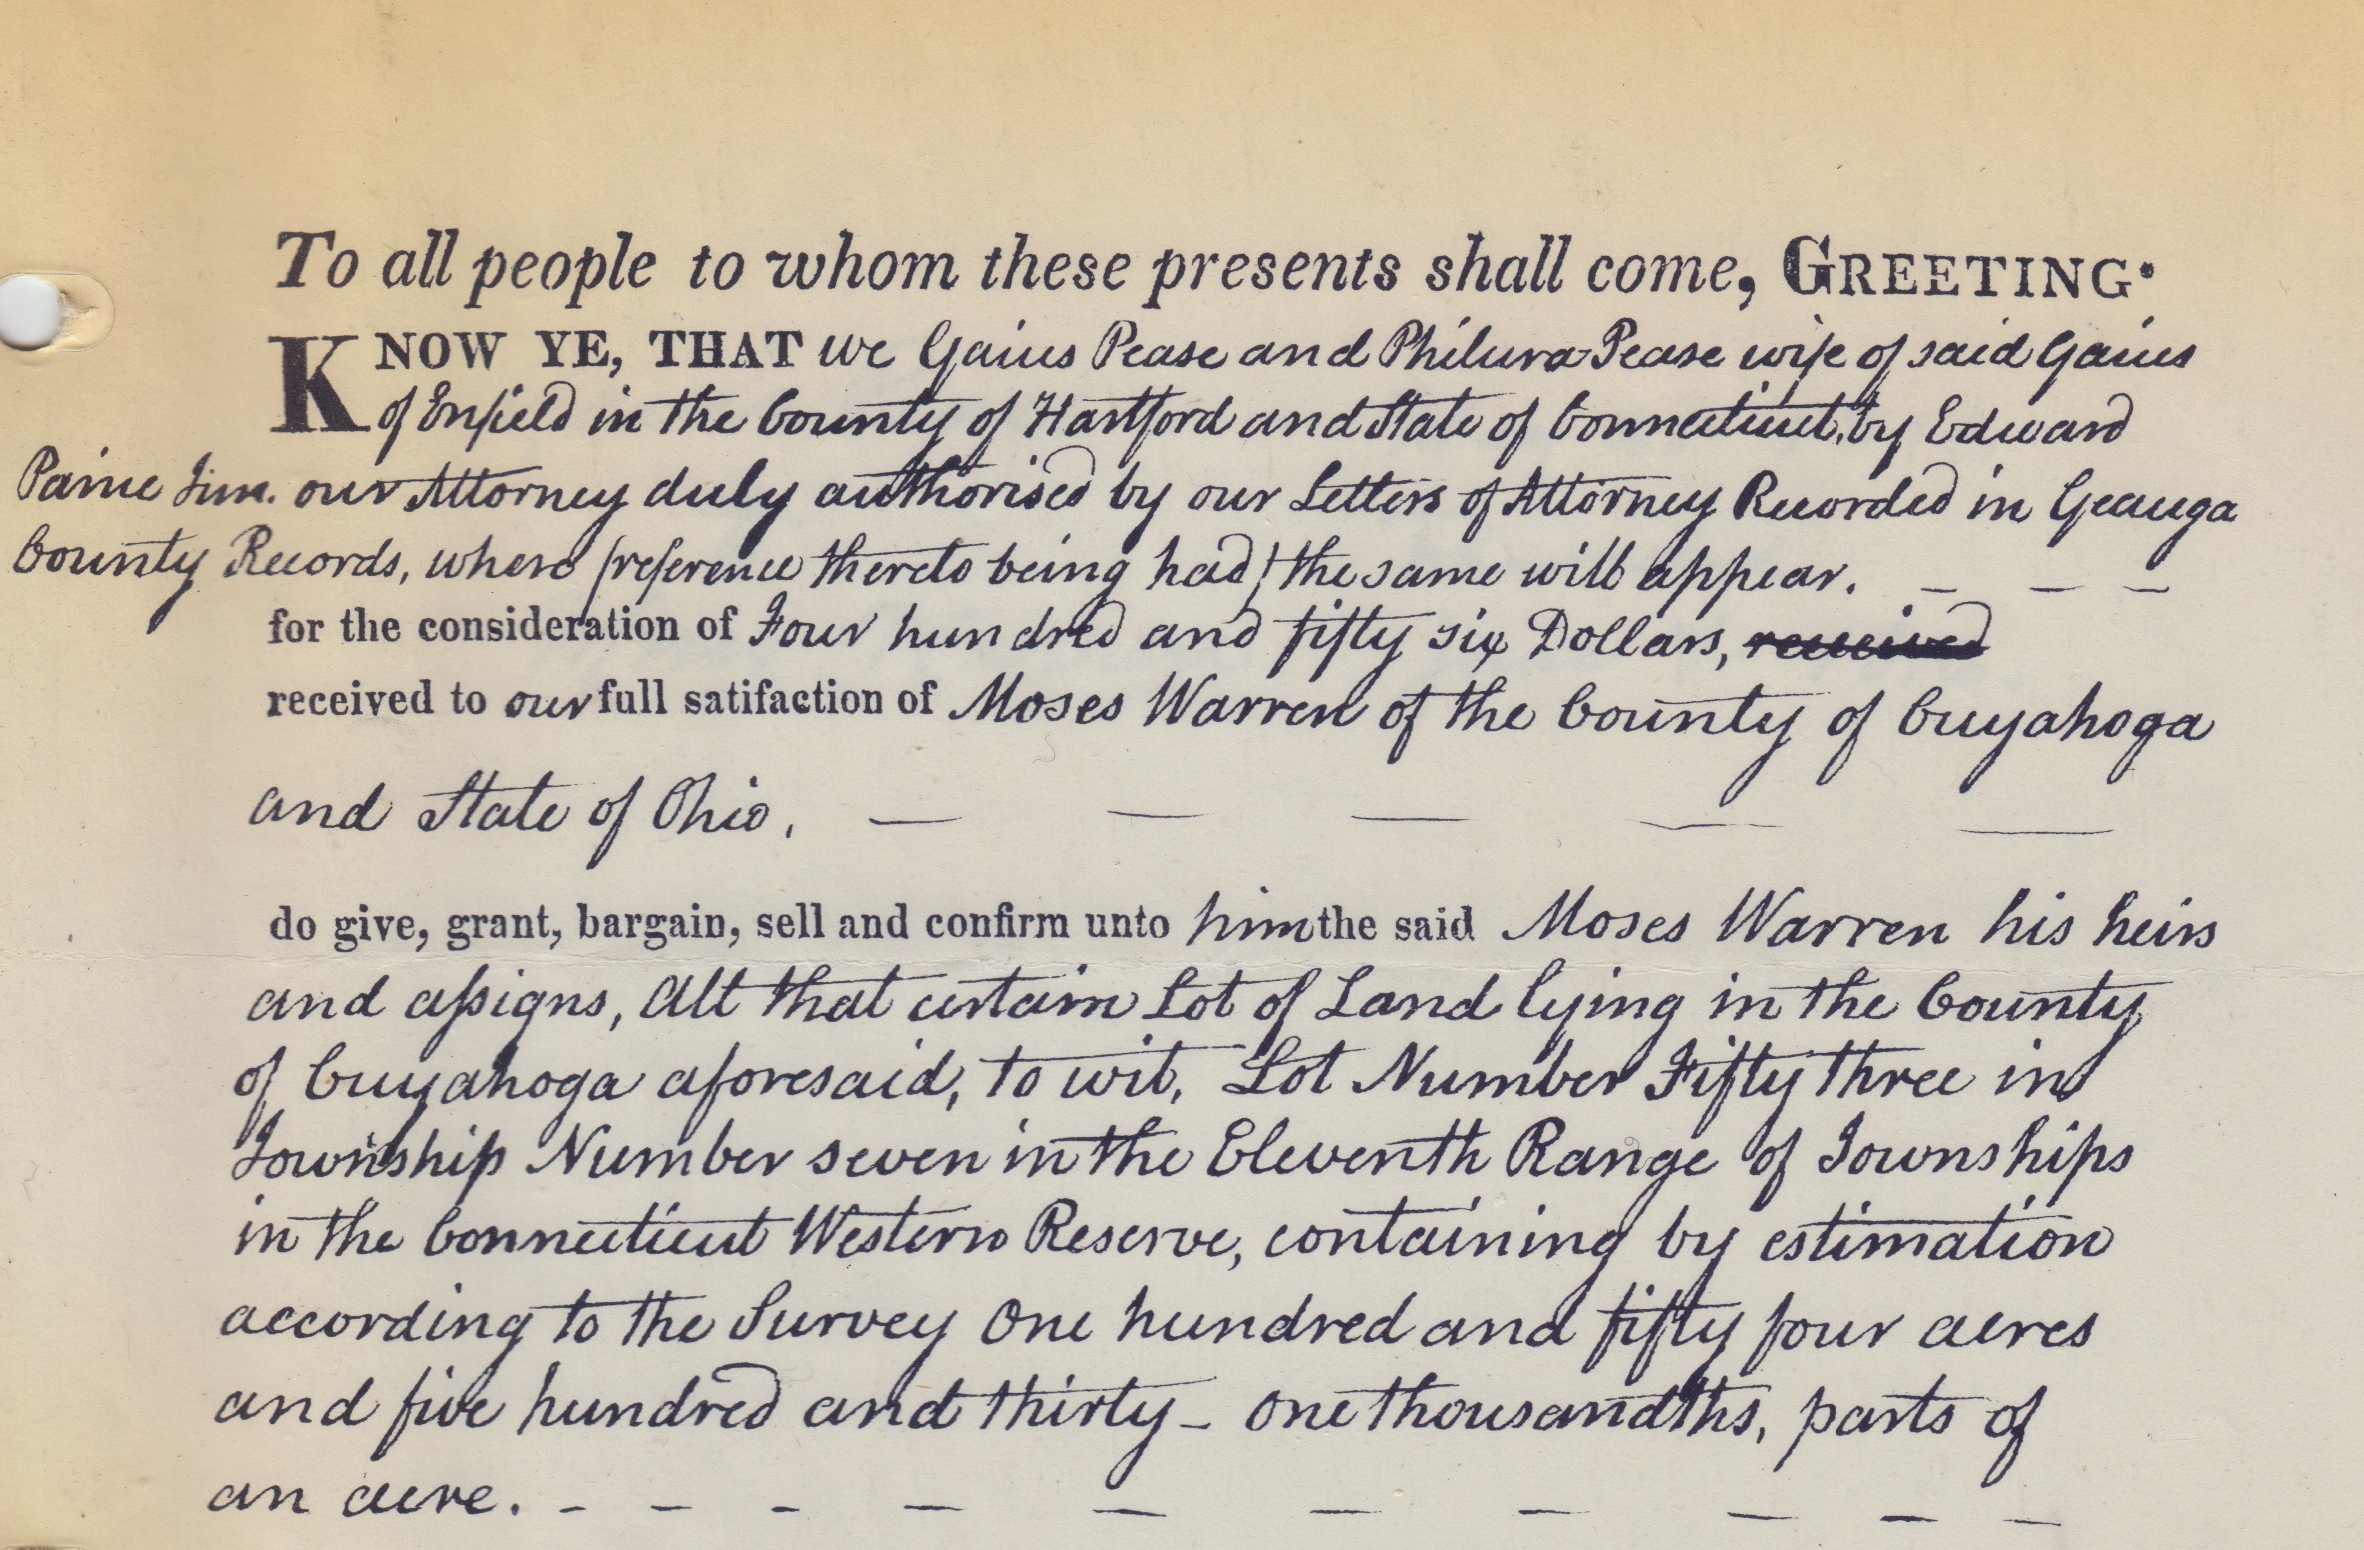 To all people to whom these presents shall come, GREETING.
KNOW YE, THAT we Gaius Pease and Philura Pease wife of said Gaius
of Enfield in the County of Hartford and State of Connecticut, by Edward
Paine Jun. our Attorney duly authorised by our Letters of Attorney Recorded in Geauga
County Records, where (reference thereto being had) the same will appear. — — —
for the consideration of Four hundred and fifty six Dollars, received
received to our full satifaction of Moses Warren of the County of Cuyahoga
and State of Ohio. — — — — —
do give, grant, bargain, sell and confirm unto him the said Moses Warren his heirs
and assigns, All that certain Lot of Land lying in the County
of Cuyahoga aforesaid, to wit, Lot Number Fifty three in
Township Number seven in the Eleventh Range of Townships
in the Connecticut Western Reserve, containing by estimation
according to the Survey One hundred and fifty four acres
and five hundred and thirty - one thousandths, parts of
an acre. - - - — — — — — — —